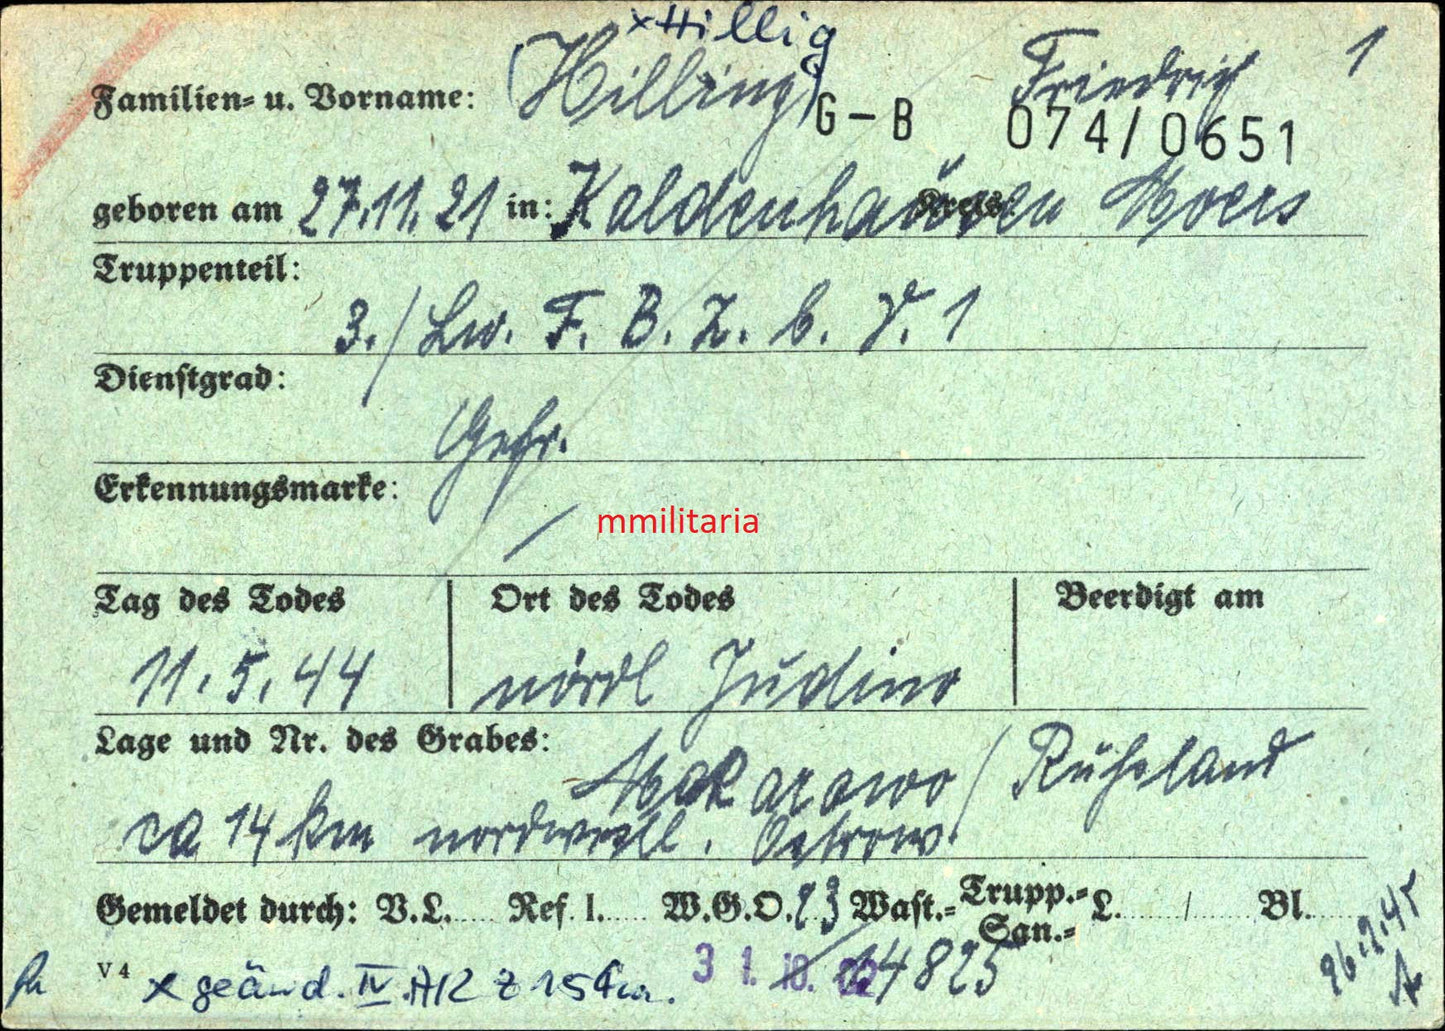 x Hillig
Familien= u. Vorname: (Hilling) Friedrich 1
G-B 074/0651
geboren am 27.11.21 in: Kaldenhausen Kreis: Moers
Truppenteil:
3./ Lw. F. B. Z. b. V. 1
Dienstgrad:
Gefr.
Erkennungsmarke:
/
mmilitaria
Tag des Todes Ort des Todes Beerdigt am
11.5.44 nördl Judino
Lage und Nr. des Grabes:
Makarowo / Rußland
ca 14 km nordwestl. Ostrow.
Gemeldet durch: V.L..... Ref. I...... W.G.O. 23 Wast.= Trupp.= San.= L......./...... Bl......
14825
V 4 x geänd. IV. AR Z 15
31. 10.
26.2.45